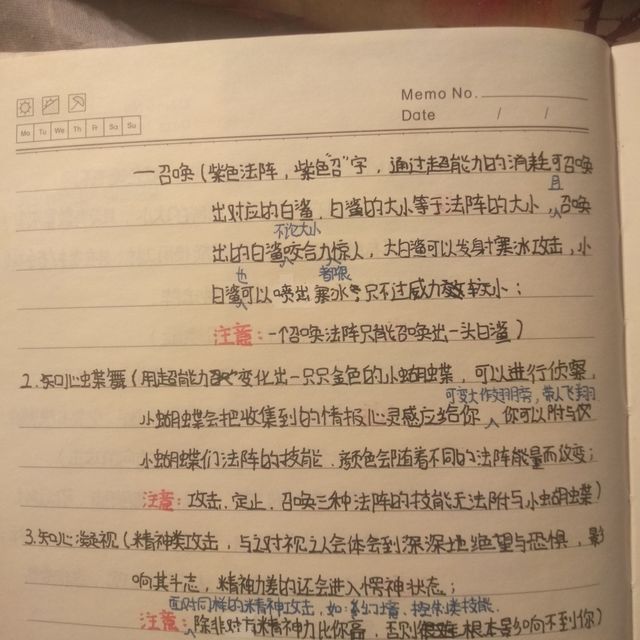 Memo No.
Mo Tu We Th Fr Sa Su
Date / /
一召唤(紫色法阵,紫色"召"字,通过超能力的消耗可召唤
出对应的白鲨,白鲨的大小等于法阵的大小,且召唤
不论大小
出的白鲨咬合力惊人,大白鲨可以发射寒冰攻击,小
也 都很
白鲨可以喷出寒冰,只不过威力较小;
注意:一个召唤法阵只能召唤出一头白鲨)
2.知心蝶舞(用超能力变化出一只只金色的小蝴蝶,可以进行侦察,
可变大作翅膀,带人飞翔
小蝴蝶会把收集到的情报心灵感应给你,你可以附与
小蝴蝶们法阵的技能,颜色会随着不同的法阵能量而改变;
注意:攻击、定止、召唤三种法阵的技能无法附与小蝴蝶)
3.知心凝视(精神类攻击,与之对视之人会体会到深深地绝望与恐惧,影
响其斗志,精神力差的还会进入愣神状态;
面对同样的精神攻击,如:幻境、控制类技能,
注意:除非对方精神力比你高,否则根本影响不到你)